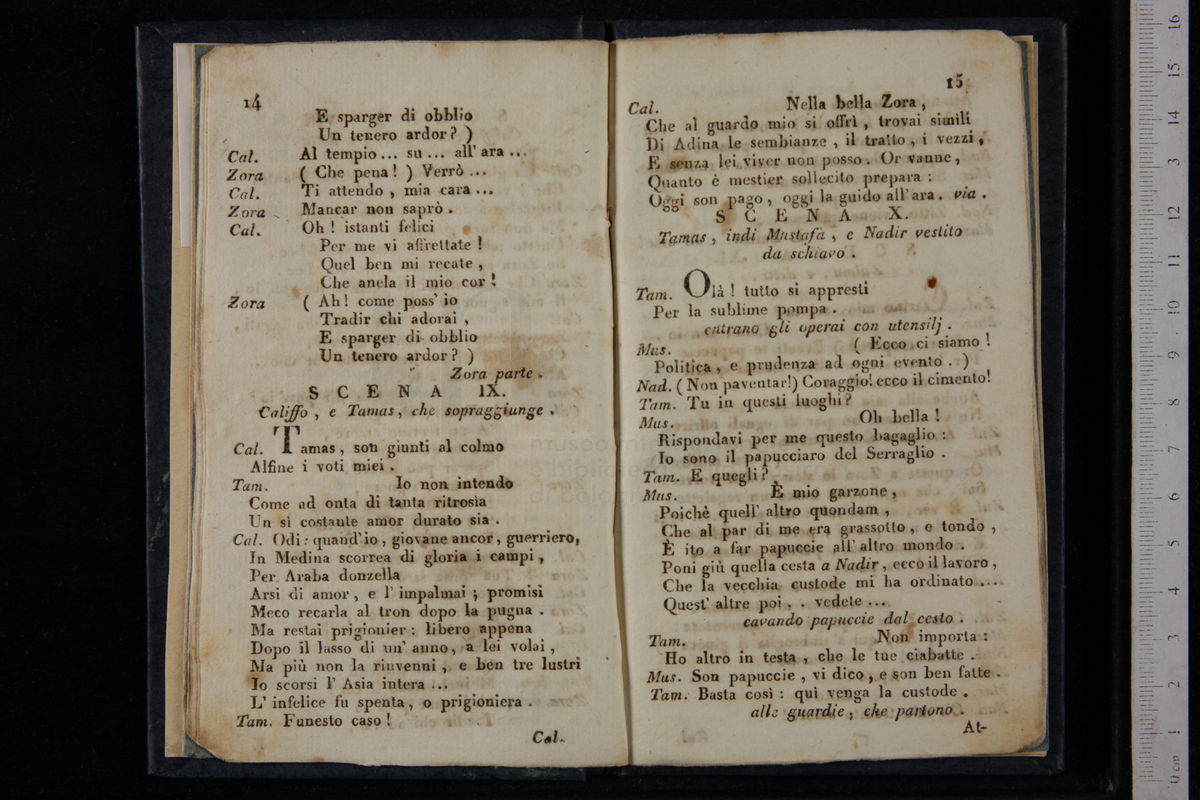 14
E sparger di obblio
Un tenero ardor? )
Cal. Al tempio... su ... all' ara ...
Zora ( Che pena! ) Verrò ...
Cal. Ti attendo , mia cara ...
Zora Mancar non saprò .
Cal. Oh ! istanti felici
Per me vi affrettate !
Quel ben mi recate ,
Che anela il mio cor !
Zora ( Ah! come poss' io
Tradir chi adorai ,
E sparger di obblio
Un tenero ardor? )
Zora parte .
SCENA IX.
Califfo , e Tamas , che sopraggiunge .
Cal. Tamas , son giunti al colmo
Alfine i voti miei .
Tam. Io non intendo
Come ad onta di tanta ritrosia
Un sì costante amor durato sia .
Cal. Odi : quand'io , giovane ancor , guerriero,
In Medina scorrea di gloria i campi ,
Per Araba donzella
Arsi di amor , e l' impalmai ; promisi
Meco recarla al tron dopo la pugna .
Ma restai prigionier : libero appena
Dopo il lasso di un' anno , a lei volai ,
Ma più non la rinvenni , e ben tre lustri
Io scorsi l' Asia intera ...
L' infelice fu spenta , o prigioniera .
Tam. Funesto caso !
Cal.
15
Cal. Nella bella Zora ,
Che al guardo mio si offrì , trovai simili
Di Adina le sembianze , il tratto , i vezzi ,
E senza lei viver non posso . Or vanne ,
Quanto è mestier sollecito prepara :
Oggi son pago , oggi la guido all' ara . via .
SCENA X.
Tamas , indi Mustafà , e Nadir vestito
da schiavo .
Tam. Olà ! tutto si appresti
Per la sublime pompa .
entrano gli operai con utensilj .
Mus. ( Ecco ci siamo !
Politica , e prudenza ad ogni evento . )
Nad. ( Non paventar!) Coraggio! ecco il cimento!
Tam. Tu in questi luoghi ?
Mus. Oh bella !
Rispondavi per me questo bagaglio :
Io sono il papucciaro del Serraglio .
Tam. E quegli ?
Mus. È mio garzone ,
Poichè quell' altro quondam ,
Che al par di me era grassotto , e tondo ,
È ito a far papuccie all' altro mondo .
Poni giù quella cesta a Nadir , ecco il lavoro ,
Che la vecchia custode mi ha ordinato ....
Quest' altre poi . . vedete ...
cavando papuccie dal cesto .
Tam. Non importa :
Ho altro in testa , che le tue ciabatte .
Mus. Son papuccie , vi dico , e son ben fatte .
Tam. Basta così : quì venga la custode .
alle guardie , che partono .
At-